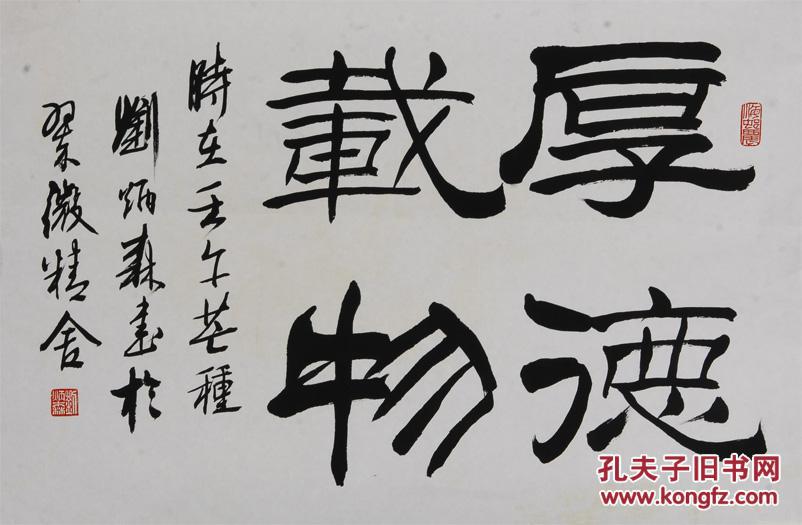 厚德
載物
時在壬午芒種
劉炳森書於
翠微精舍
劉炳森
孔夫子旧书网
www.kongfz.com